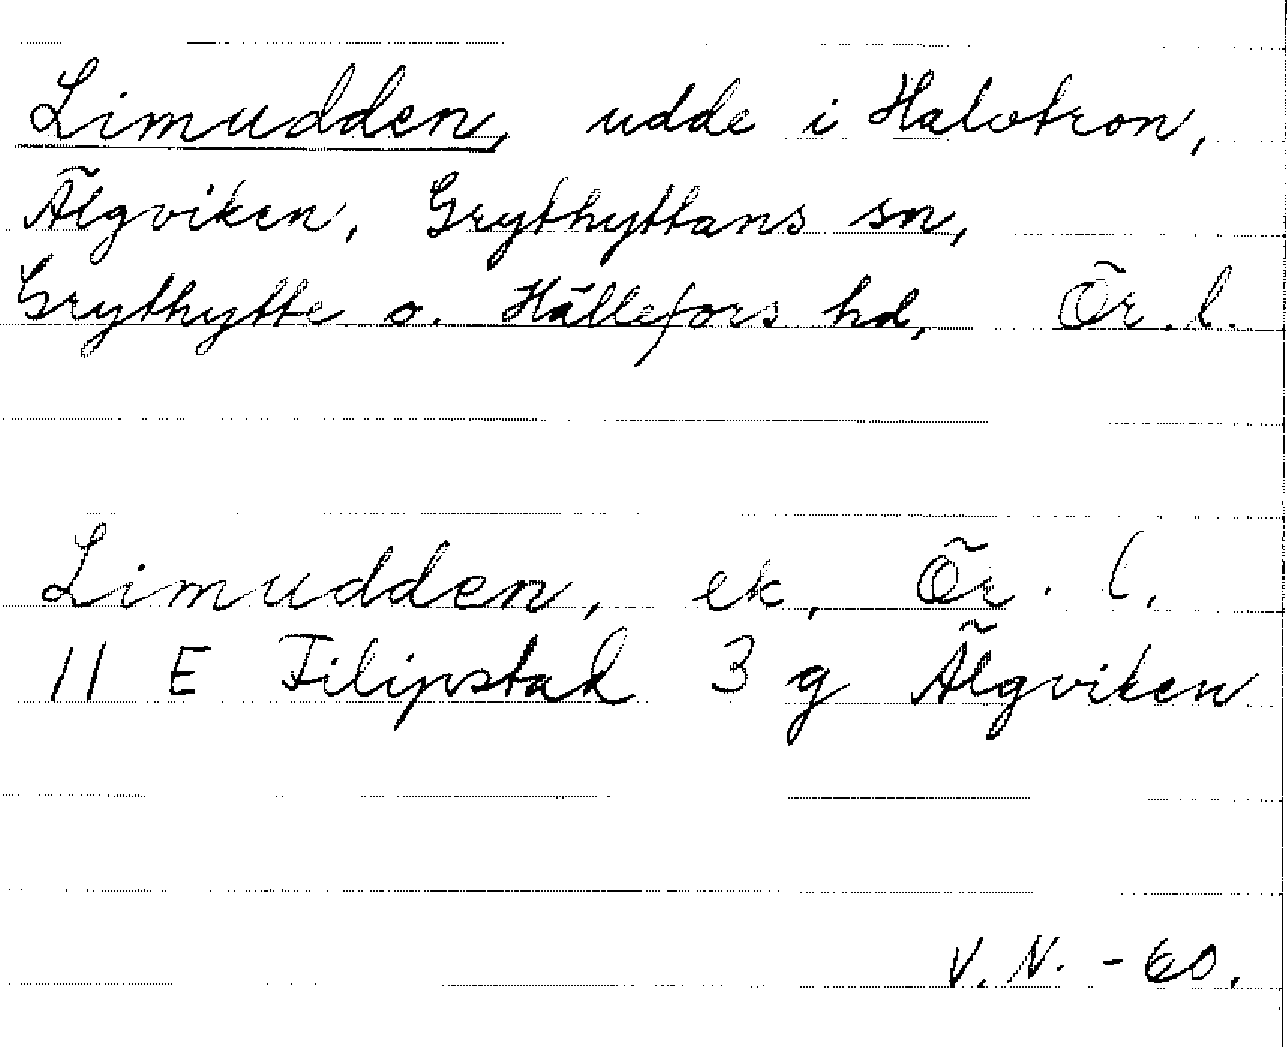 Limudden, udde i Halvtron,
Älgviken, Grythyttans sn,
Grythytte o. Hällefors hd, Ör. l.
Limudden, ek, Ör. l.
11 E Filipstad 3 g Älgviken
V. N. - 60.